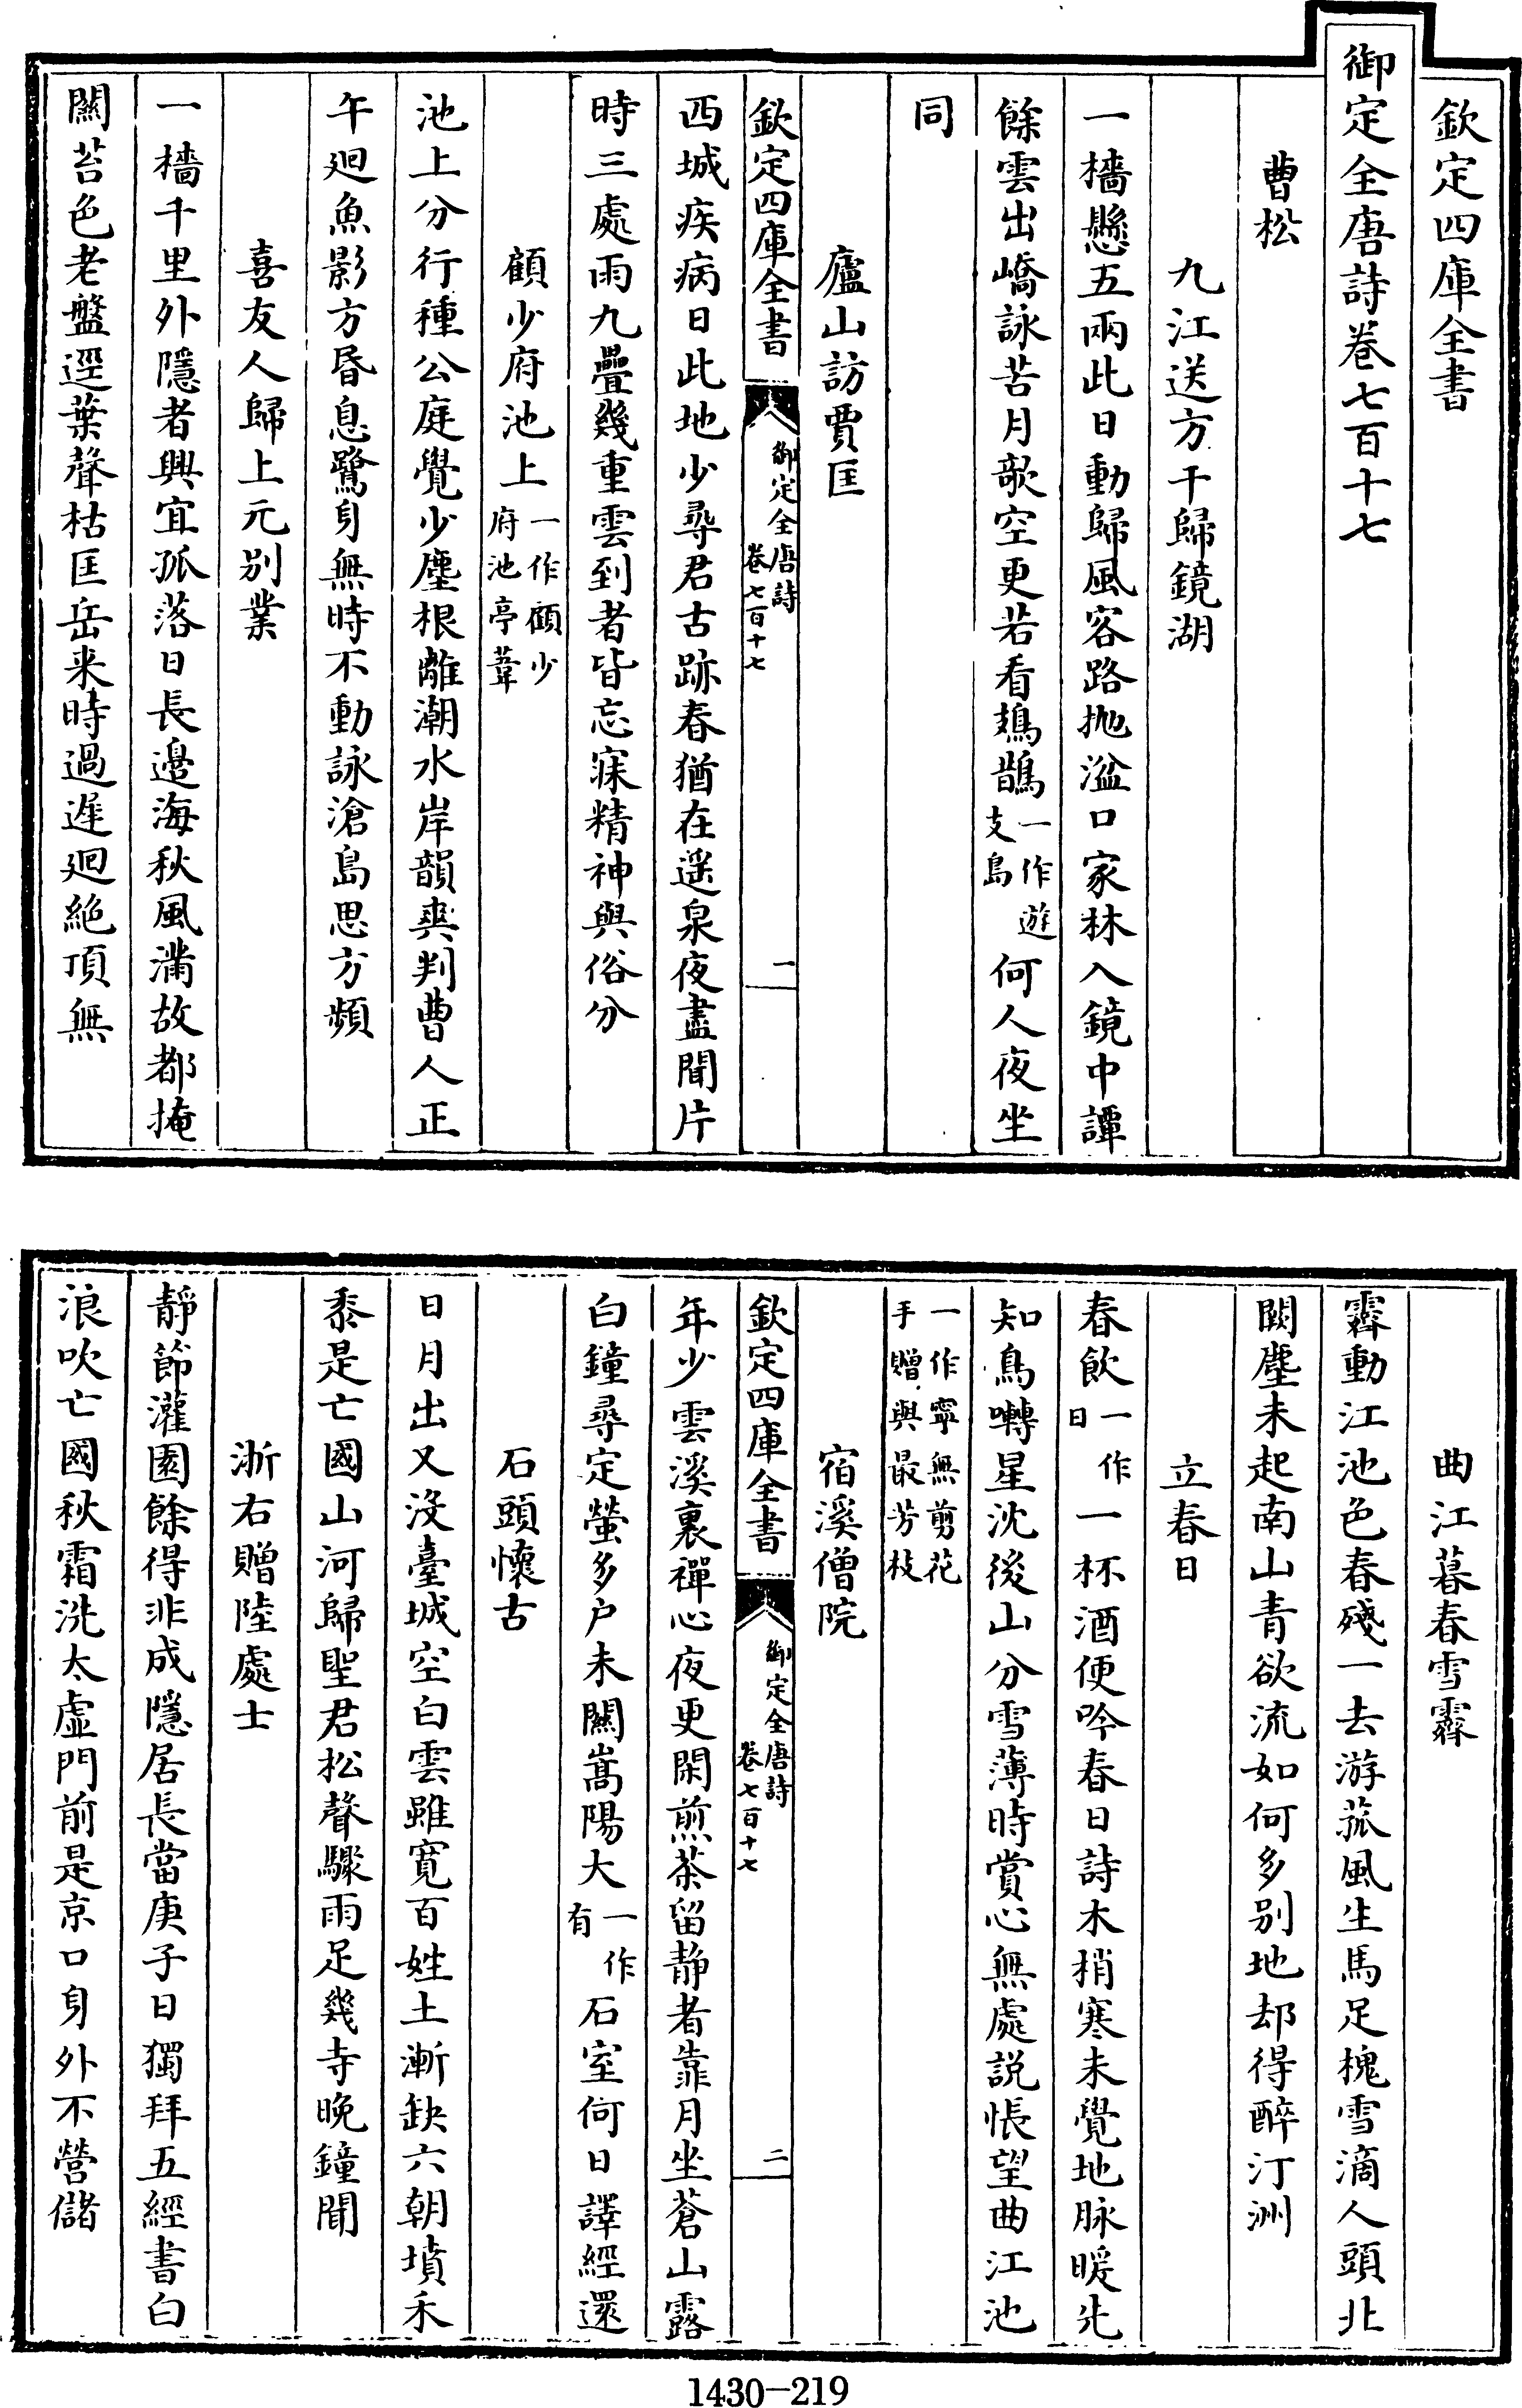 欽定四庫全書
御定全唐詩卷七百十七
曹松
九江送方干歸鏡湖
一檣懸五兩此日動歸風客路抛湓口家林入鏡中譚
餘雲出嶠詠苦月欹空更若看鳷鵲一作遊支島何人夜坐
同
廬山訪賈匡
欽定四庫全書 御定全唐詩卷七百十七 一
西城疾病日此地少尋君古跡春猶在遥泉夜盡聞片
時三處雨九疊幾重雲到者皆忘寐精神與俗分
顧少府池上一作顧少府池亭葦
池上分行種公庭覺少塵根離潮水岸韻爽判曹人正
午廻魚影方昏息鷺身無時不動詠滄島思方頻
喜友人歸上元別業
一檣千里外隱者興宜孤落日長邉海秋風滿故都掩
關苔色老盤逕葉聲枯匡岳来時過遲廻絶頂無
曲江暮春雪霽
霽動江池色春殘一去游菰風生馬足槐雪滴人頭北
闕塵未起南山青欲流如何多別地却得醉汀洲
立春日
春飲一作日一杯酒便吟春日詩木梢寒未覺地脉暖先
知鳥囀星沈後山分雪薄時賞心無處説悵望曲江池
一作寧無剪花手贈與最芳枝
宿溪僧院
欽定四庫全書 御定全唐詩卷七百十七 二
年少雲溪裏禪心夜更閑煎茶留静者靠月坐蒼山露
白鐘尋定螢多户未關嵩陽大一作有石室何日譯經還
石頭懷古
日月出又沒臺城空白雲雖寛百姓土漸缺六朝墳禾
黍是亡國山河歸聖君松聲驟雨足幾寺晚鐘聞
浙右贈陸處士
靜節灌園餘得非成隱居長當庚子日獨拜五經書白
浪吹亡國秋霜洗太虛門前是京口身外不營儲
1430-219